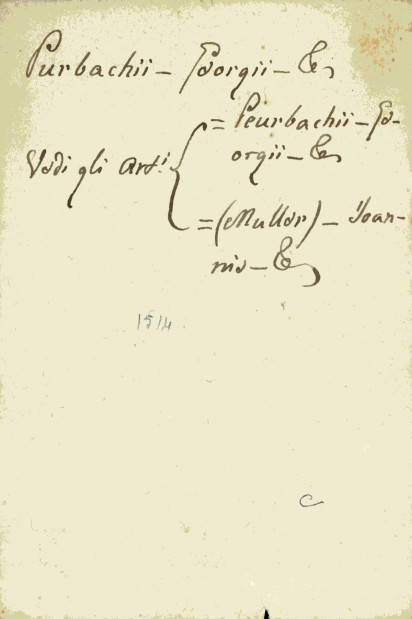 Purbachii - Georgii - &c
Vedi gli Arti.
= Peurbachii - Ge-
orgii - &c
= (Muller) - Joan-
nis - &c
1514
C